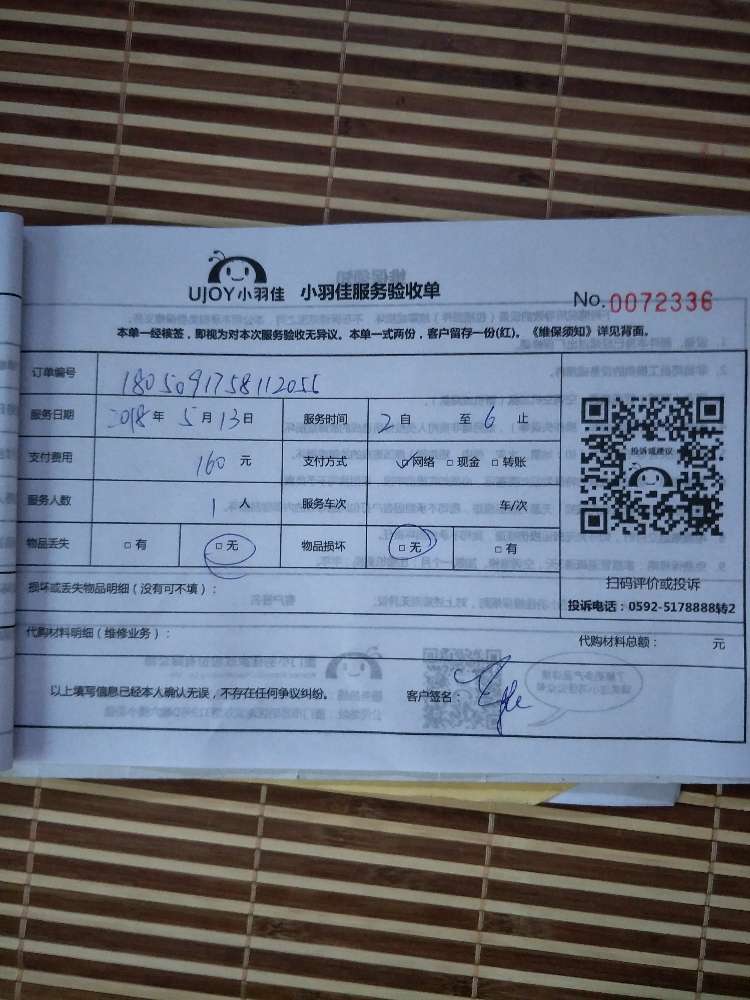 UJOY小羽佳 小羽佳服务验收单
No. 0072336
本单一经核签，即视为对本次服务验收无异议。本单一式两份，客户留存一份(红)。《维保须知》详见背面。
订单编号 1805091758112055
服务日期 2018 年 5 月 13 日 服务时间 2 自 至 6 止
支付费用 160 元 支付方式 ☑网络 □现金 □转账
投诉或建议
服务人数 1 人 服务车次 车/次
物品丢失 □有 □无 物品损坏 □无 □有
扫码评价或投诉
损坏或丢失物品明细（没有可不填）：
投诉电话：0592-5178888转2
代购材料明细（维修业务）： 代购材料总额： 元
以上填写信息已经本人确认无误，不存在任何争议纠纷。 客户签名：